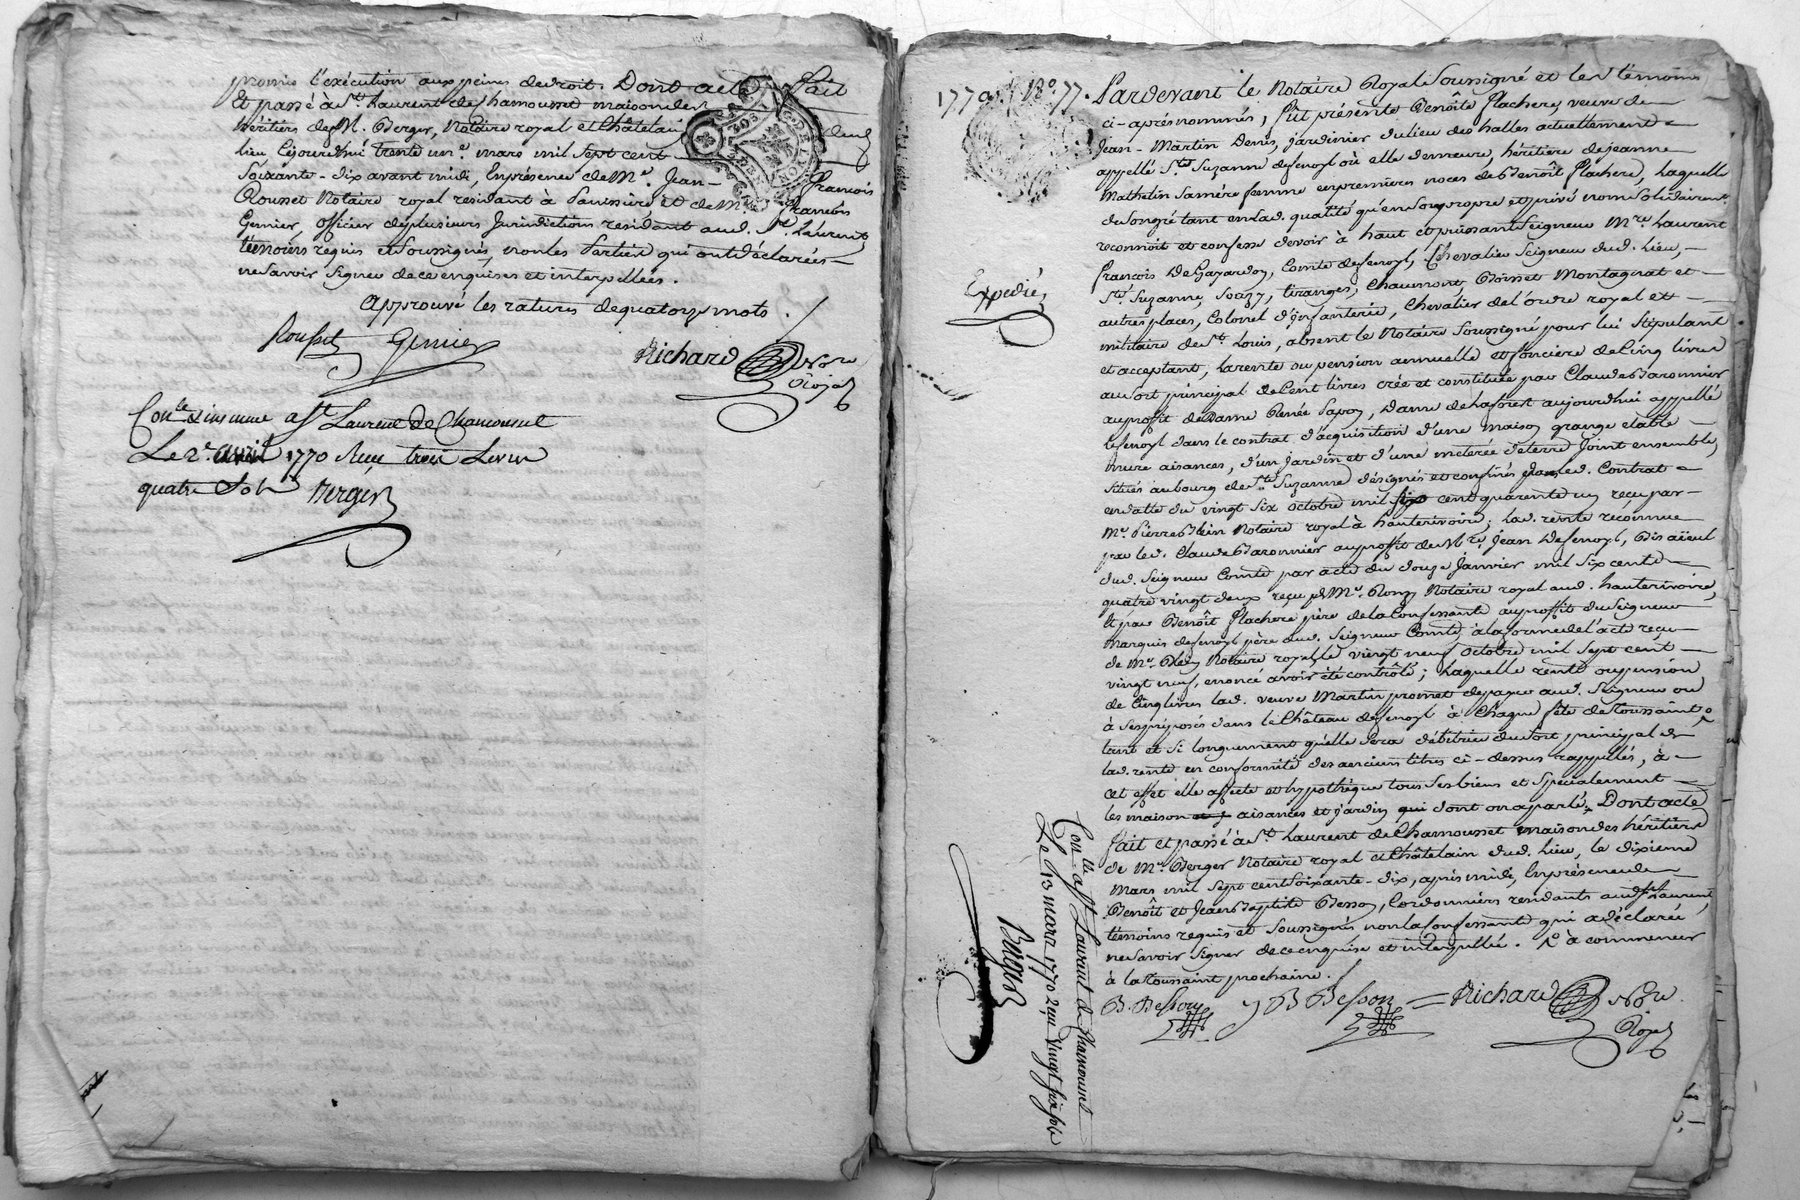 promis l'exécution aux peines de droit. Dont acte Fait
Et passé à St. Laurent de Chamousset maison des
héritiers de M. Berger, Notaire royal et Châtelain dud.
lieu Cejourd'hui trente un e. mars mil sept cent
Soixante-dix avant midi, En présence de Me. Jean-François
Rousset Notaire royal residant à Saurssiere et de M. François
Gemier, officier de plusieurs Jurisdictions residant aud. St. Laurent,
témoins requis et Soussignés, non les Parties qui ont déclarées
ne savoir signer de ce enquises et interpellées.
Approuvé les ratures de quatorze mots.
Rousset Gemier
Richard Nore
Royal
Con.lé & insinué a St Laurent De Chamousset
Le 2e. avril 1770 Reçu trois Livres
quatre Sols Berger
1770. No. 77. Pardevant le Notaire Royal Soussigné et les témoins
ci-après nommés, fût présente Benôite Flachere, veuve de
Jean-Martin Denis, jardinier du lieu des halles actuellement
appellé Ste. Suzanne de fenoyl où elle demeure, héritiere de jeanne
Mathelin Sa mére femme en premieres noces de Benoît Flachere, Laquelle
de Son gré tant en Lad. qualité qu'en Son propre et privé nom Solidairemt.
reconnoit et confesse devoir à haut et puissant Seigneur Mre. Laurent
François De Gayardon, Comte de fenoyl, Chevalier Seigneur dud. Lieu,
Ste. Suzanne, Souzy, tiranges, Chaumont, Boisset Montagnat et
autres places, Colonel d'infanterie, Chevalier de l'ordre royal et
Expedié,
militaire de St. Louis, absent le Notaire Soussigné pour lui Stipulant
et acceptant, La rente ou pension annuelle et fonciere de Cinq livres
au Sort principal de Cent livres crée et constituée par Claude Baronnier
au profit de Dame Renée Papon, Dame de Laforest aujourdhui appellé
le fenoyl dans le contrat d'acquisition d'une maison grange étable
Cure aisances, d'un jardin et d'une meterée de terre Joint ensemble,
Situés au bourg de Ste. Suzanne désignés et confinés dans led. Contrat
en datte du vingt Six octobre mil six cent quarente un reçu par
Me. Pierre Blein Notaire royal à hauterivoire; Lad. rente reconnue
par led. Claude Baronnier au proffit de Mre. Jean De fenoyl, Bisaïeul
dud. Seigneur Comte par acte du douze Janvier mil Six cent
quatre vingt deux reçu pr Me. Rony Notaire royal aud. hauterivoire,
Et par Benoît Flachere pére de la Confessante au proffit du Seigneur
Marquis de fenoyl pére dud. Seigneur Comte, à la forme de l'acte reçu
de Me. Notaire royal le vingt neuf octobre mil Sept cent
vingt neuf, enoncé avoir été contrôlé; Laquelle rente ou pension
de Cinq livres lad. veuve Martin promet de payer aud. Seigneur ou
à Ses préposés dans le Château de fenoyl à Chaque fête de Toussaint
tant et Si longuement qu'elle Sera débitrice du Sort principal de
lad. rente en conformité des anciens titres ci-dessus rappellés, à
Cet effet elle affecte et hypothéque tous Ses biens et Spécialement
les maison et j aisances et jardin qui dont on a parlé; Dont acte
Fait et passé à St. Laurent de Chamousset maison des héritiers
de Me. Berger Notaire royal et Châtelain dud. Lieu, le dixieme
Mars mil Sept cent Soixante-dix, après midi, En présence de
Benoît et Jean Baptiste Besson, Cordonniers residants aud. St. Laurent,
témoins requis et Soussignés non la Confessante qui a déclaré
ne Savoir Signer de ce enquise et interpellée. à commencer
à la toussaint prochaine.
B. Besson J B Besson Richard Nore
Royal
Con.llé a St Laurent de Chamousset
Le 13 mars 1770 Reçu vingt six sols
Berger